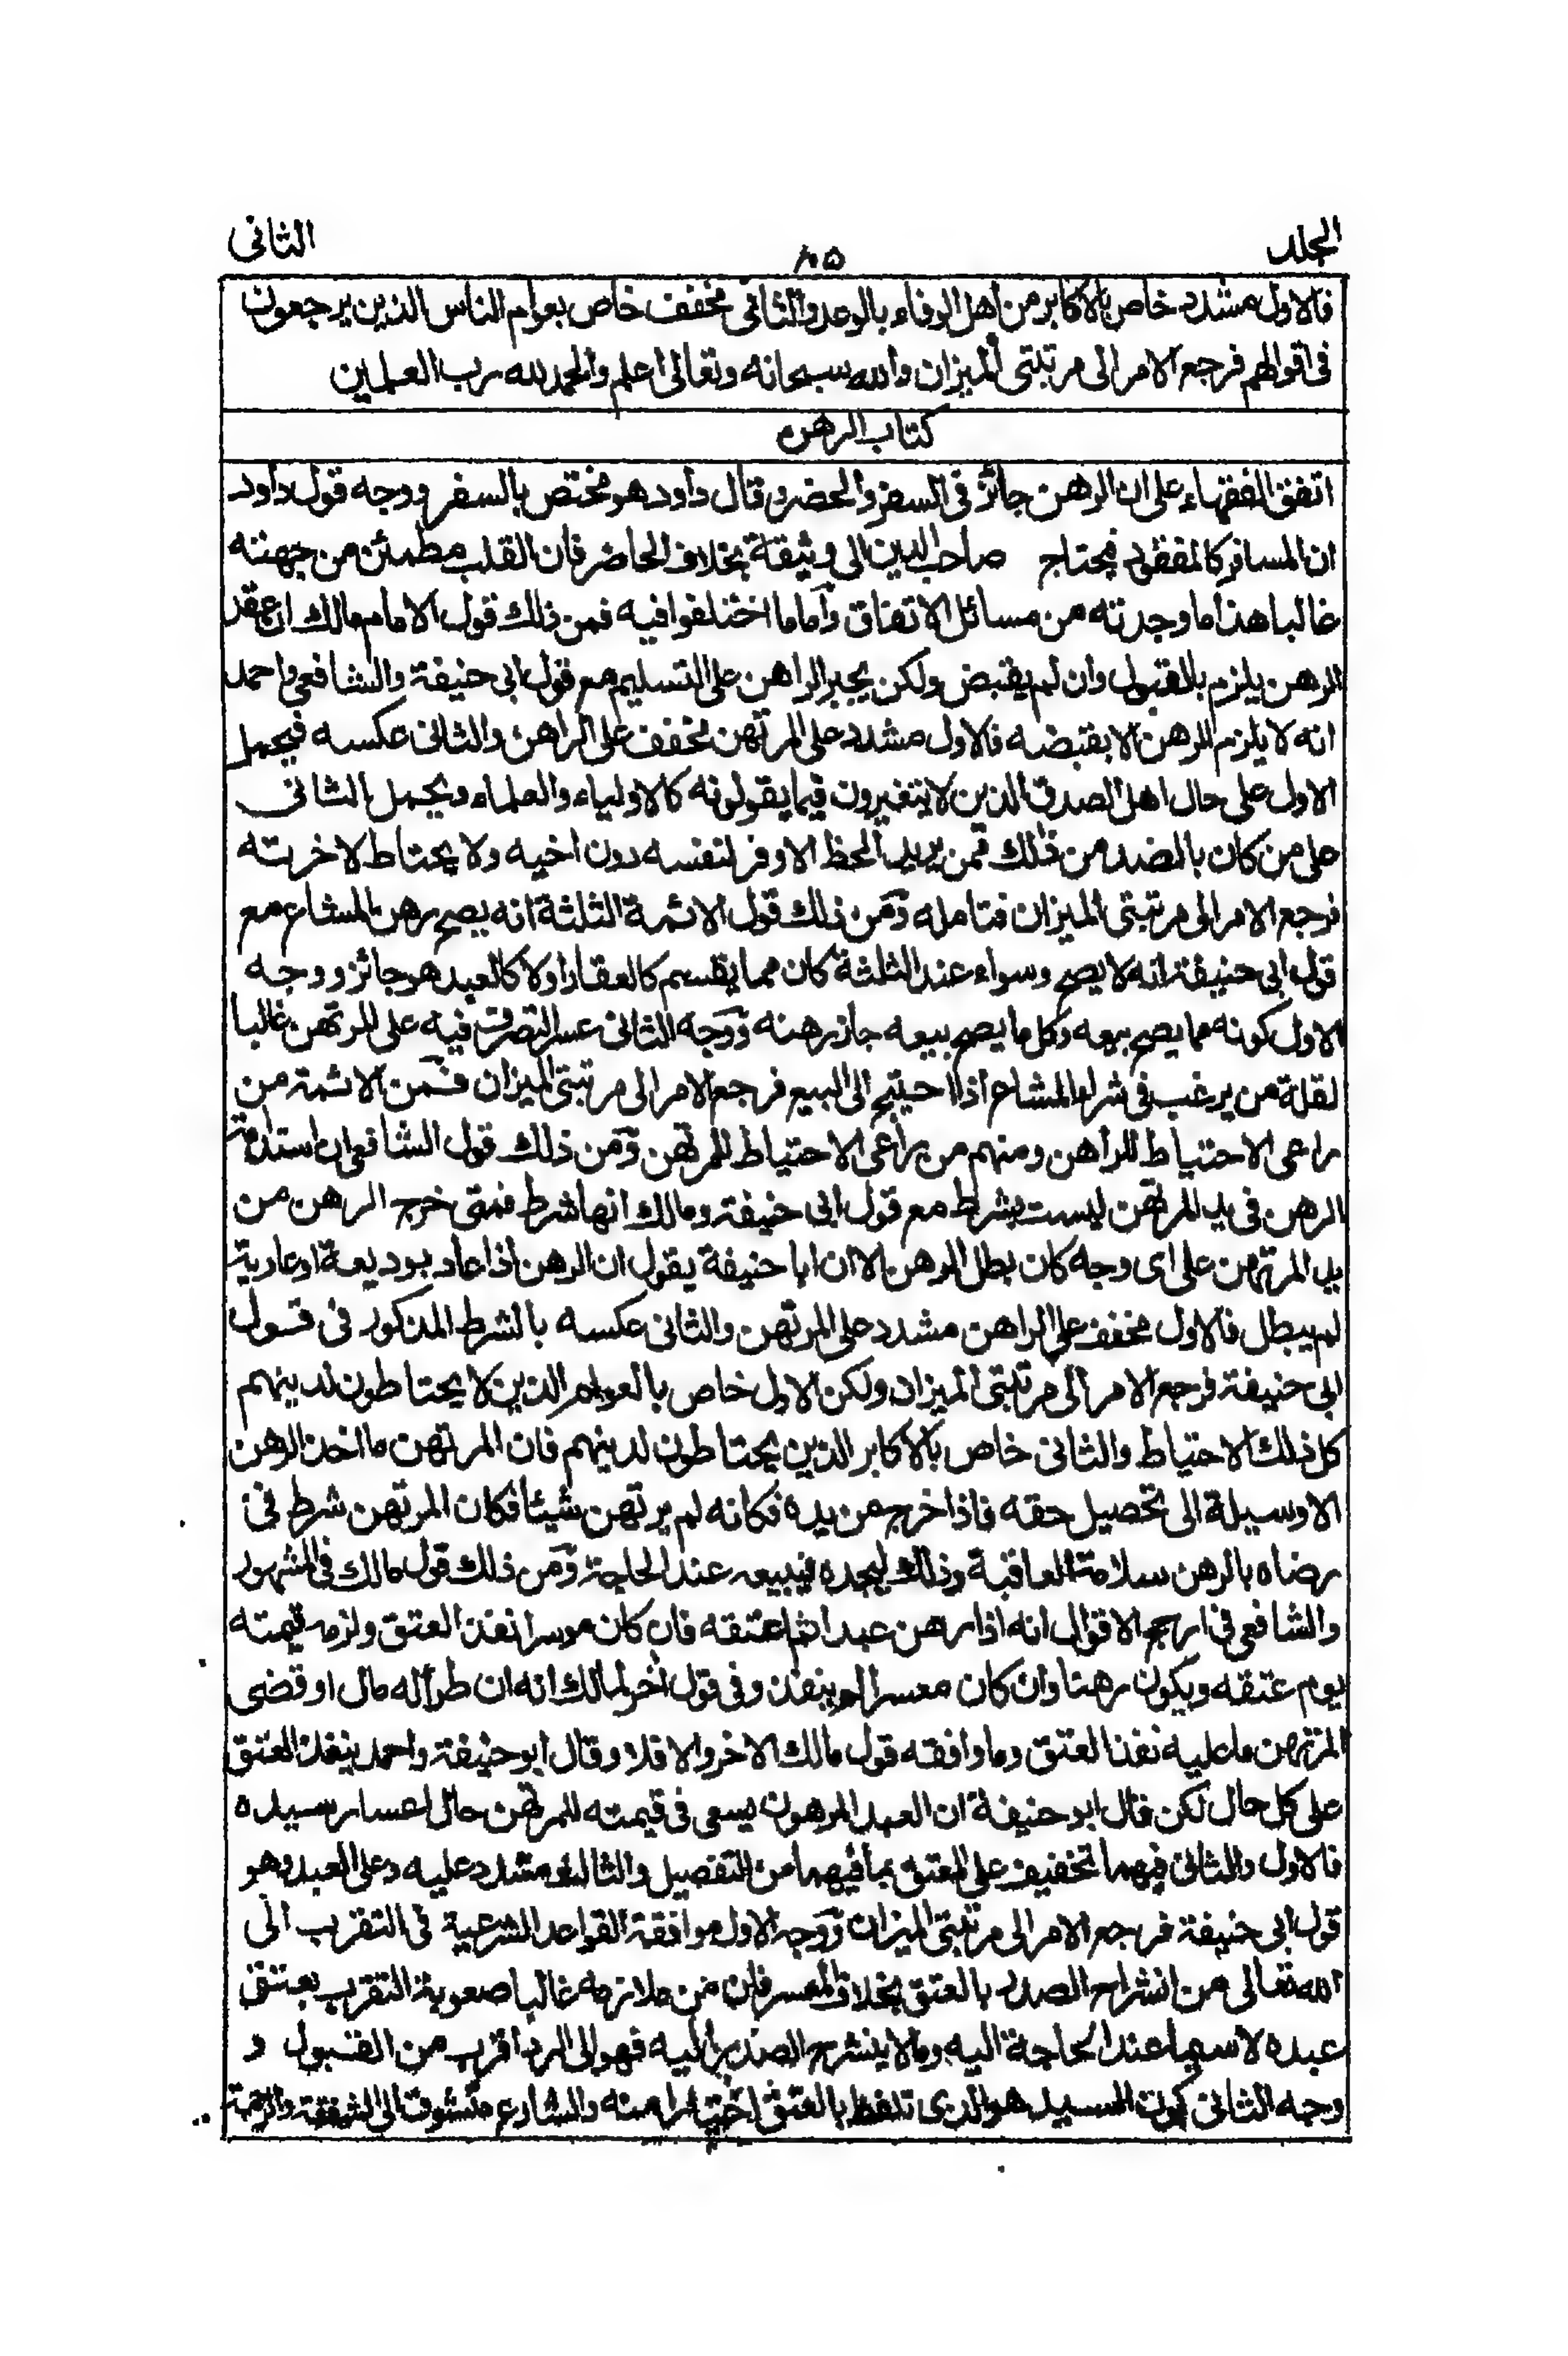 الجلد
١٠٥
الثانى
فالاول مشدد خاص بالاكابر من اهل الوفاء بالوعد والثانى مخفف خاص بعوام الناس الذين يرجعون
فى اقوالهم فرجع الامر الى مرتبتى الميزان والله سبحانه وتعالى اعلم والحمد لله رب العلمين
كتاب الرهن
اتفق الفقهاء على ان الرهن جائز فى السفر والحضر وقال داود هو مختص بالسفر ووجه قول داود
ان المسافر كالمفقود فيحتاج صاحب الدين الى وثيقة بخلاف الحاضر فان القلب مطمئن من جهته
غالبا هذا ما وجدته من مسائل الاتفاق وأما ما اختلفوا فيه فمن ذلك قول الامام مالك ان عقد
الرهن يلزم بالقبول وان لم يقبض ولكن يجبر الراهن على التسليم مع قول ابى حنيفة والشافعى واحمد
انه لا يلزم الرهن الا بقبضه فالاول مشدد على المرتهن مخفف على الراهن والثانى عكسه فيحمل
الاول على حال اهل الصدق الذين لا يتغيرون فيما يقولونه كالاولياء والعلماء ويحمل الثانى
على من كان بالضد من ذلك فمن يريد الحظ الاوفر لنفسه دون اخيه ولا يحتاط لاخرته
فرجع الامر الى مرتبتى الميزان فتامله ومن ذلك قول الائمة الثلثة انه يصح رهن المشاع مع
قول ابى حنيفة انه لا يصح وسواء عند الثلثة كان مما يقسم كالعقار اولا كالعبد هو جائز ووجه
الاول كونه مما يصح بيعه وكل ما يصح بيعه جاز رهنه ووجه الثانى عسر التصرف فيه على المرتهن غالبا
لقلة من يرغب فى شراء المشاع اذا احتيج الى البيع فرجع الامر الى مرتبتى الميزان فمن الائمة من
راعى الاحتياط للراهن ومنهم من راعى الاحتياط للمرتهن ومن ذلك قول الشافعى ان استدامة
الرهن فى يد المرتهن ليست بشرط مع قول ابى حنيفة ومالك انها شرط فمتى خرج الرهن من
يد المرتهن على اى وجه كان بطل الرهن الا ان ابا حنيفة يقول ان الرهن اذا عاد بوديعة او عارية
لم يبطل فالاول مخفف على الراهن مشدد على المرتهن والثانى عكسه بالشرط المذكور فى قول
ابى حنيفة فرجع الامر الى مرتبتى الميزان ولكن الاول خاص بالعوام الذين لا يحتاطون لدينهم
كل ذلك الاحتياط والثانى خاص بالاكابر الذين يحتاطون لدينهم فان المرتهن ما اخذ الرهن
الا وسيلة الى تحصيل حقه فاذا خرج من يده فكانه لم يرتهن شيئا فكان المرتهن شرط فى
رضاه بالرهن سلامة العاقبة وذلك ليجده فيبيعه عند الحاجة ومن ذلك قول مالك فى المشهور
والشافعى فى ارجح الاقوال انه اذا رهن عبدا ثم اعتقه فان كان موسرا نفذ العتق ولزمه قيمته
يوم عتقه ويكون رهنا وان كان معسرا لم ينفذ وفى قول اخر لمالك انه ان طرأ له مال او قضى
المرتهن ما عليه نفذ العتق وما وافقه قول مالك الاخر والا فلا وقال ابو حنيفة واحمد ينفذ العتق
على كل حال لكن قال ابو حنيفة ان العبد المرهون يسعى فى قيمته للمرتهن حال اعسار سيده
فالاول والثانى فيهما تخفيف على المعتق بما فيهما من التفصيل والثالث مشدد عليه وعلى العبد وهو
قول ابى حنيفة فرجع الامر الى مرتبتى الميزان ووجه الاول موافقة القواعد الشرعية فى التقرب الى
الله تعالى من انشراح الصدر بالعتق بخلاف المعسر فان من ملازمه غالبا صعوبة التقرب بعتق
عبده لا سيما عند الحاجة اليه وما لا ينشرح الصدر اليه فهو الى الرد اقرب من القبول و
وجه الثانى كون السيد هو الذى تلفظ بالعتق اختيارا منه والشارع متشوف الى الشفقة والرحمة